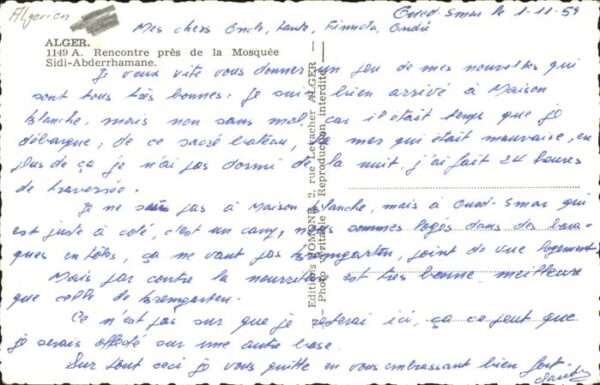 Algerien
Oued Smar le 1-11-59
Mes chers Oncle, tante, André
ALGER.
1149 A. Rencontre près de la Mosquée
Sidi-Abderrhamane.
Je veux vite vous donner un peu de mes nouvelles qui
sont tous très bonnes. Je suis bien arrivé à Maison
Blanche, mais non sans mal, car il était temps que je
débarque, de ce sacré bateau, la mer qui était mauvaise, en
plus de ça je n'ai pas dormi de la nuit, j'ai fait 24 heures
de traversée.
Je ne suis pas à Maison Blanche, mais à Oued-Smar qui
est juste à coté, c'est un camp, nous sommes logés dans des bara-
ques en tôles, ça ne vaut pas Bremgarten, point de vue logement
Mais par contre la nourriture est très bonne, meilleure
que celle de Bremgarten.
Ce n'est pas sur que je resterai ici, ça ce peut que
je serais affecté sur une autre base.
Sur tout ceci je vous quitte en vous embrassant bien fort.
Editions POMONE 2, rue Letellier ALGER -
- Photo véritable - Reproduction interdite -